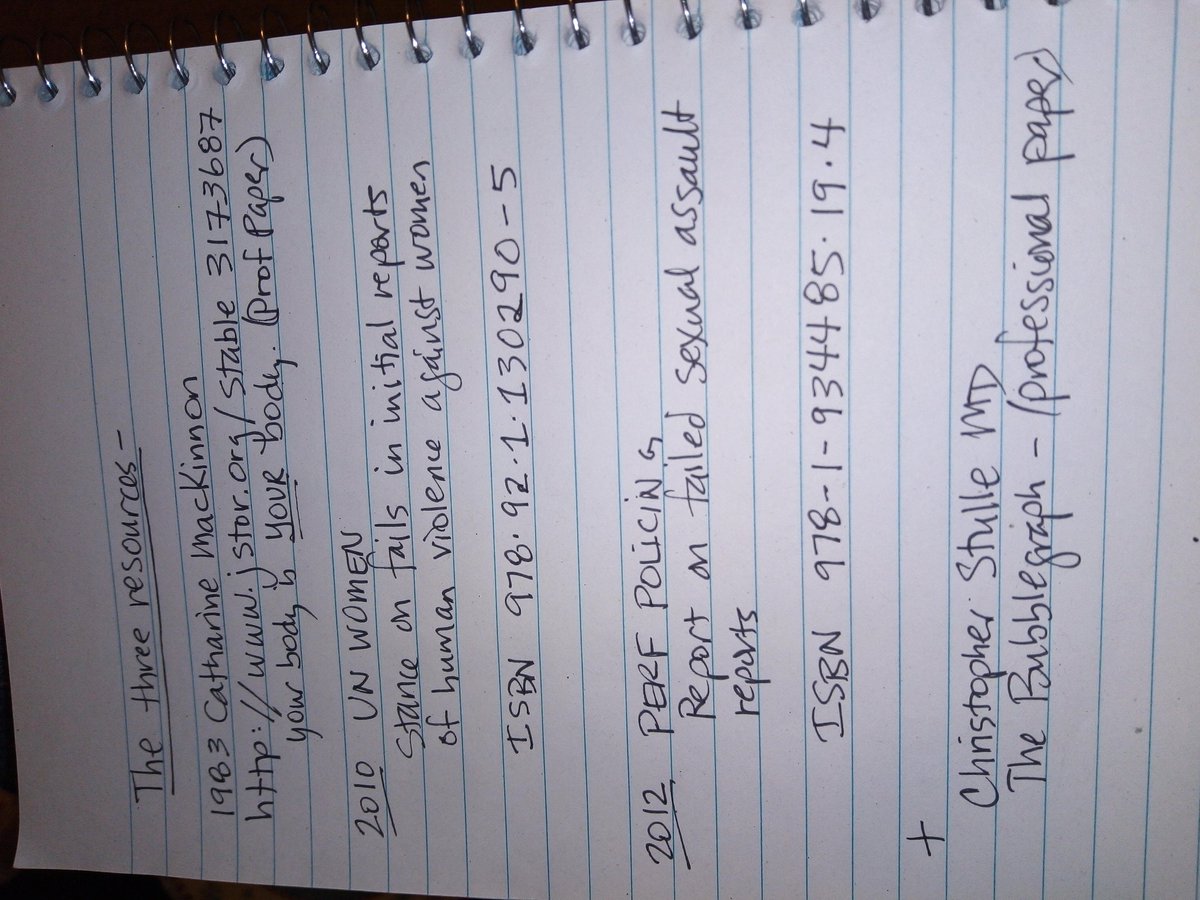 The three resources-
1983 Catharine MacKinnon
http://www.jstor.org/stable 3173687
your body is YOUR body. (Prof Paper)
2010 UN WOMEN
Stance on fails in initial reports
of human violence against women
ISBN 978.92.1.130290-5
2012 PERF POLICING
Report on failed sexual assault
reports
ISBN 978-1-934485.19.4
+
Christopher Stulle MD
The Bubblegraph - (professional paper)